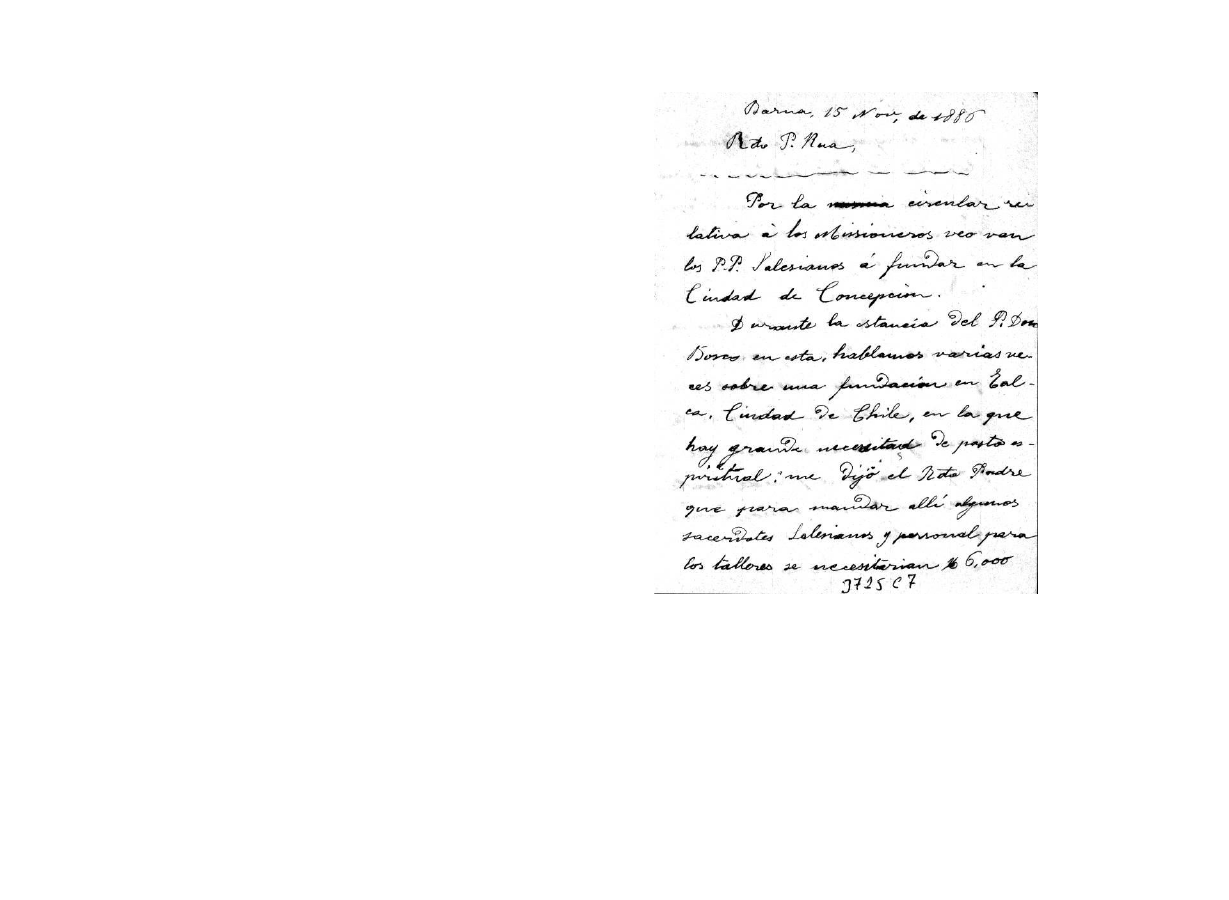 Barna, 15 Nov, de 1886
Rdo P. Rua,
Por la circular re
lativa à los Missioneros veo van
los P.P. Salesianos á fundar en la
Ciudad de Concepcion.
Durante la estancia del P. Don
Bosco en esta, hablamos varias ve-
ces sobre una fundacion en Tal-
ca, Ciudad de Chile, en la que
hay grande necesitad de pasto es-
piritual; me dijo el Rdo Padre
que para mandar allí algunos
sacerdotes Salesianos y personal para
los talleres se necesitarian $ 6,000
3725 C 7